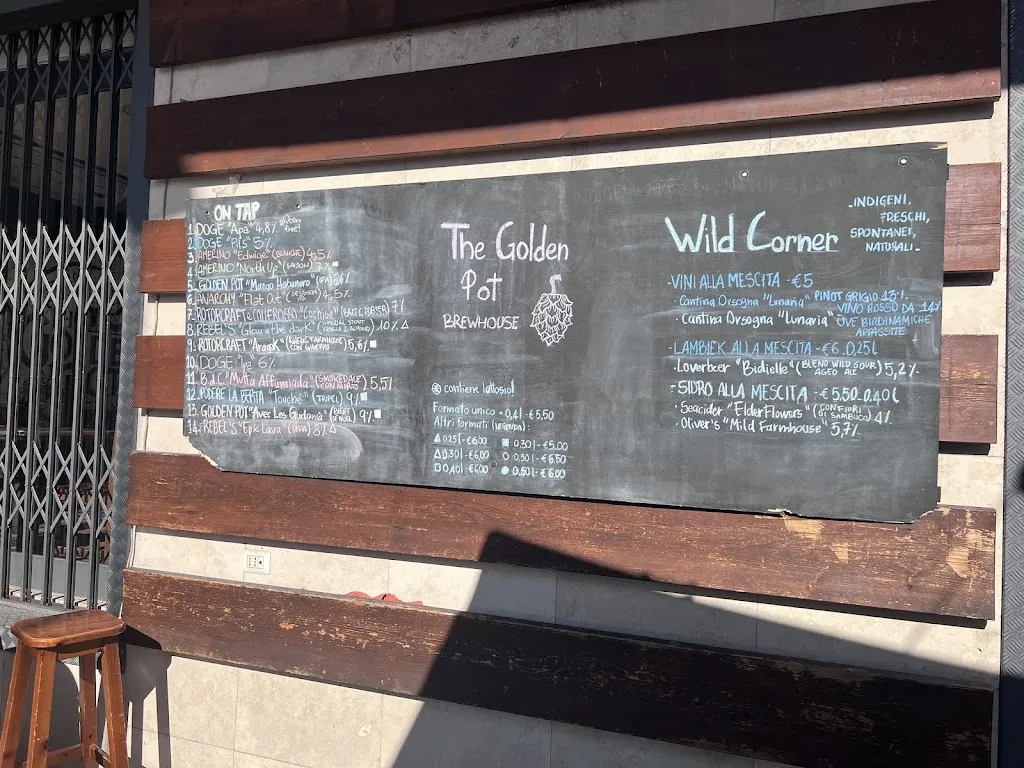 ON TAP
1. DOGE "Apa" 4,8% gluten free!
2. DOGE "Pils" 5%
3. AMERINO "Edwige" (BLANCHE) 4,5%
4. AMERINO "North Up" (SAISON) 7%
5. GOLDEN POT "Mango Habanero (IPA) 6%
6. ANARCHY "Flat Out" (SESSION) 4,5%
7. ROTORCRAFT "Cochise" (BALTIC PORTER) 7%
8. REBEL'S "Glow in the dark" 10% △
9. ROTORCRAFT "Anank" (KVEIK FARMHOUSE CON GINEPRO) 5,6%
10. DOGE "Ipa" 6%
11. B.d.C "Muffa Affumicada" (SMOKED ALE CON MIRTO) 5,5%
12. PODERE LA BERTA "Touché" (TRIPEL) 9%
13. GOLDEN POT "Avec Les Gudonis" (BIÈRE DE MIEL) 9%
14. REBEL'S "Epic Lava" (DIPA) 8% △
The Golden
Pot
BREWHOUSE
contiene lattosio!
Formato unico → 0,4l - €5,50
Altri formati (vengono):
△ 0,25l - €6.00
△ 0,30l - €6.00
□ 0,40l - €6.00
■ 0,30l - €5.00
○ 0,30l - €5.50
● 0,50l - €6.00
Wild Corner
- INDIGENI,
FRESCHI,
SPONTANEI,
NATURALI -
- VINI ALLA MESCITA - €5
- Cantina Orsogna "Lunaria" PINOT GRIGIO 13%
- Cantina Orsogna "Lunaria" VINO ROSSO DA UVE BIODINAMICHE APPASSITE 14%
- LAMBIEK ALLA MESCITA - €6. 0,25l
- Loverbeer "Bidielle" (BLEND WILD SOUR AGED ALE) 5,2%
- SIDRO ALLA MESCITA - €5.50 - 0.40l
- Seacider "Elder Flowers" (CON FIORI DI SAMBUCO) 4%
- Oliver's "Mild Farmhouse" 5,7%